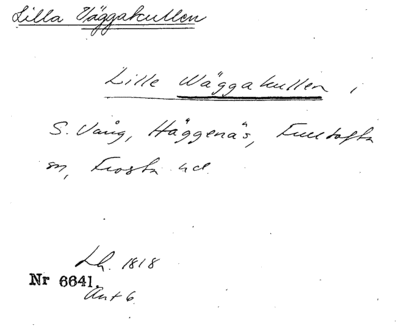 Lilla Väggakullen
Lille Wäggakullen i
S. Vång, Häggenäs, Fulltofta
sn, Frosta hd
Lh. 1818
Nr 6641.
Akt 6